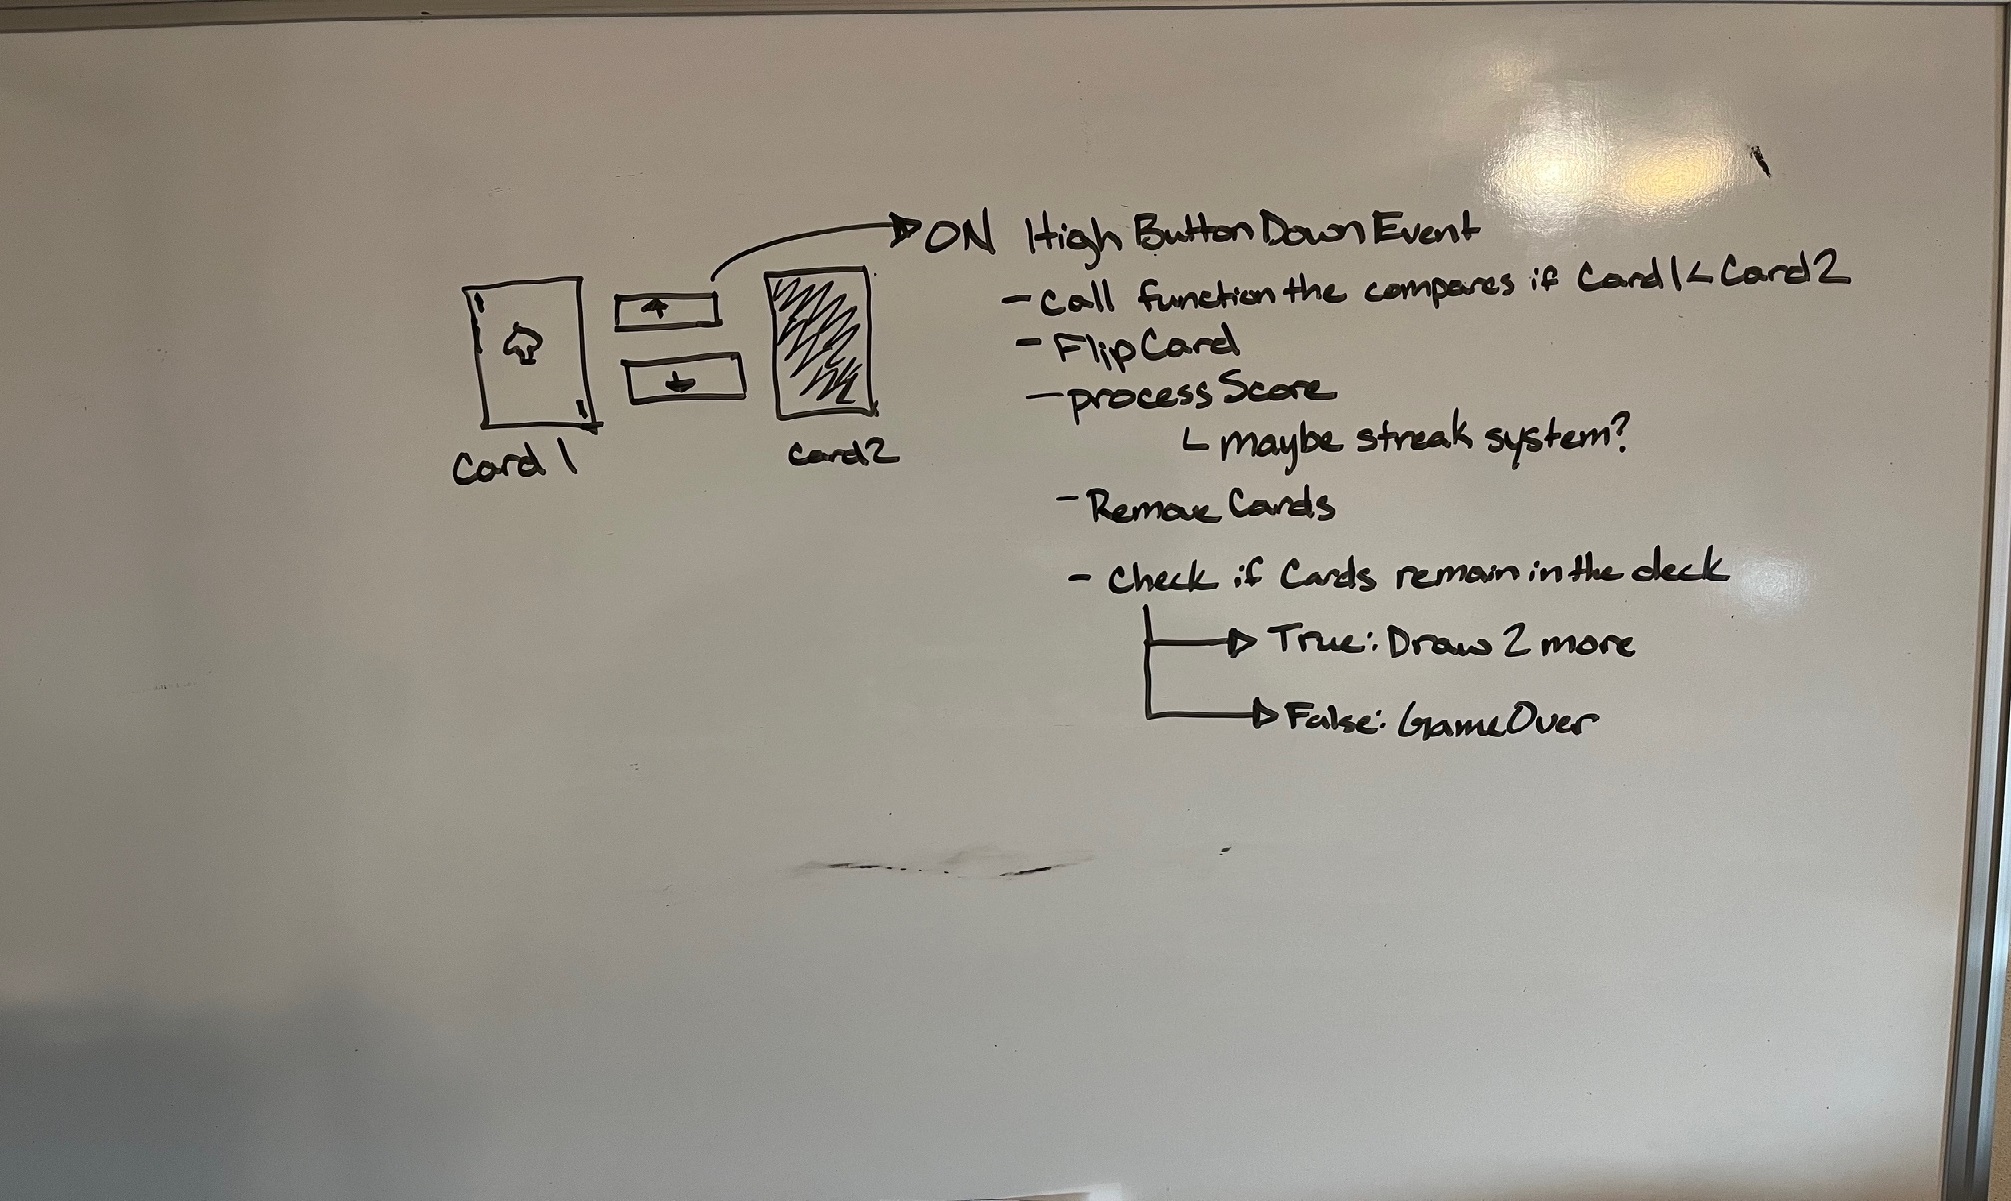 ON High Button Down Event
- Call function the compares if Card 1 < Card 2
- Flip Card
- process Score
maybe streak system?
- Remove Cards
- Check if Cards remain in the deck
True: Draw 2 more
False: Game Over
Card 1
Card 2